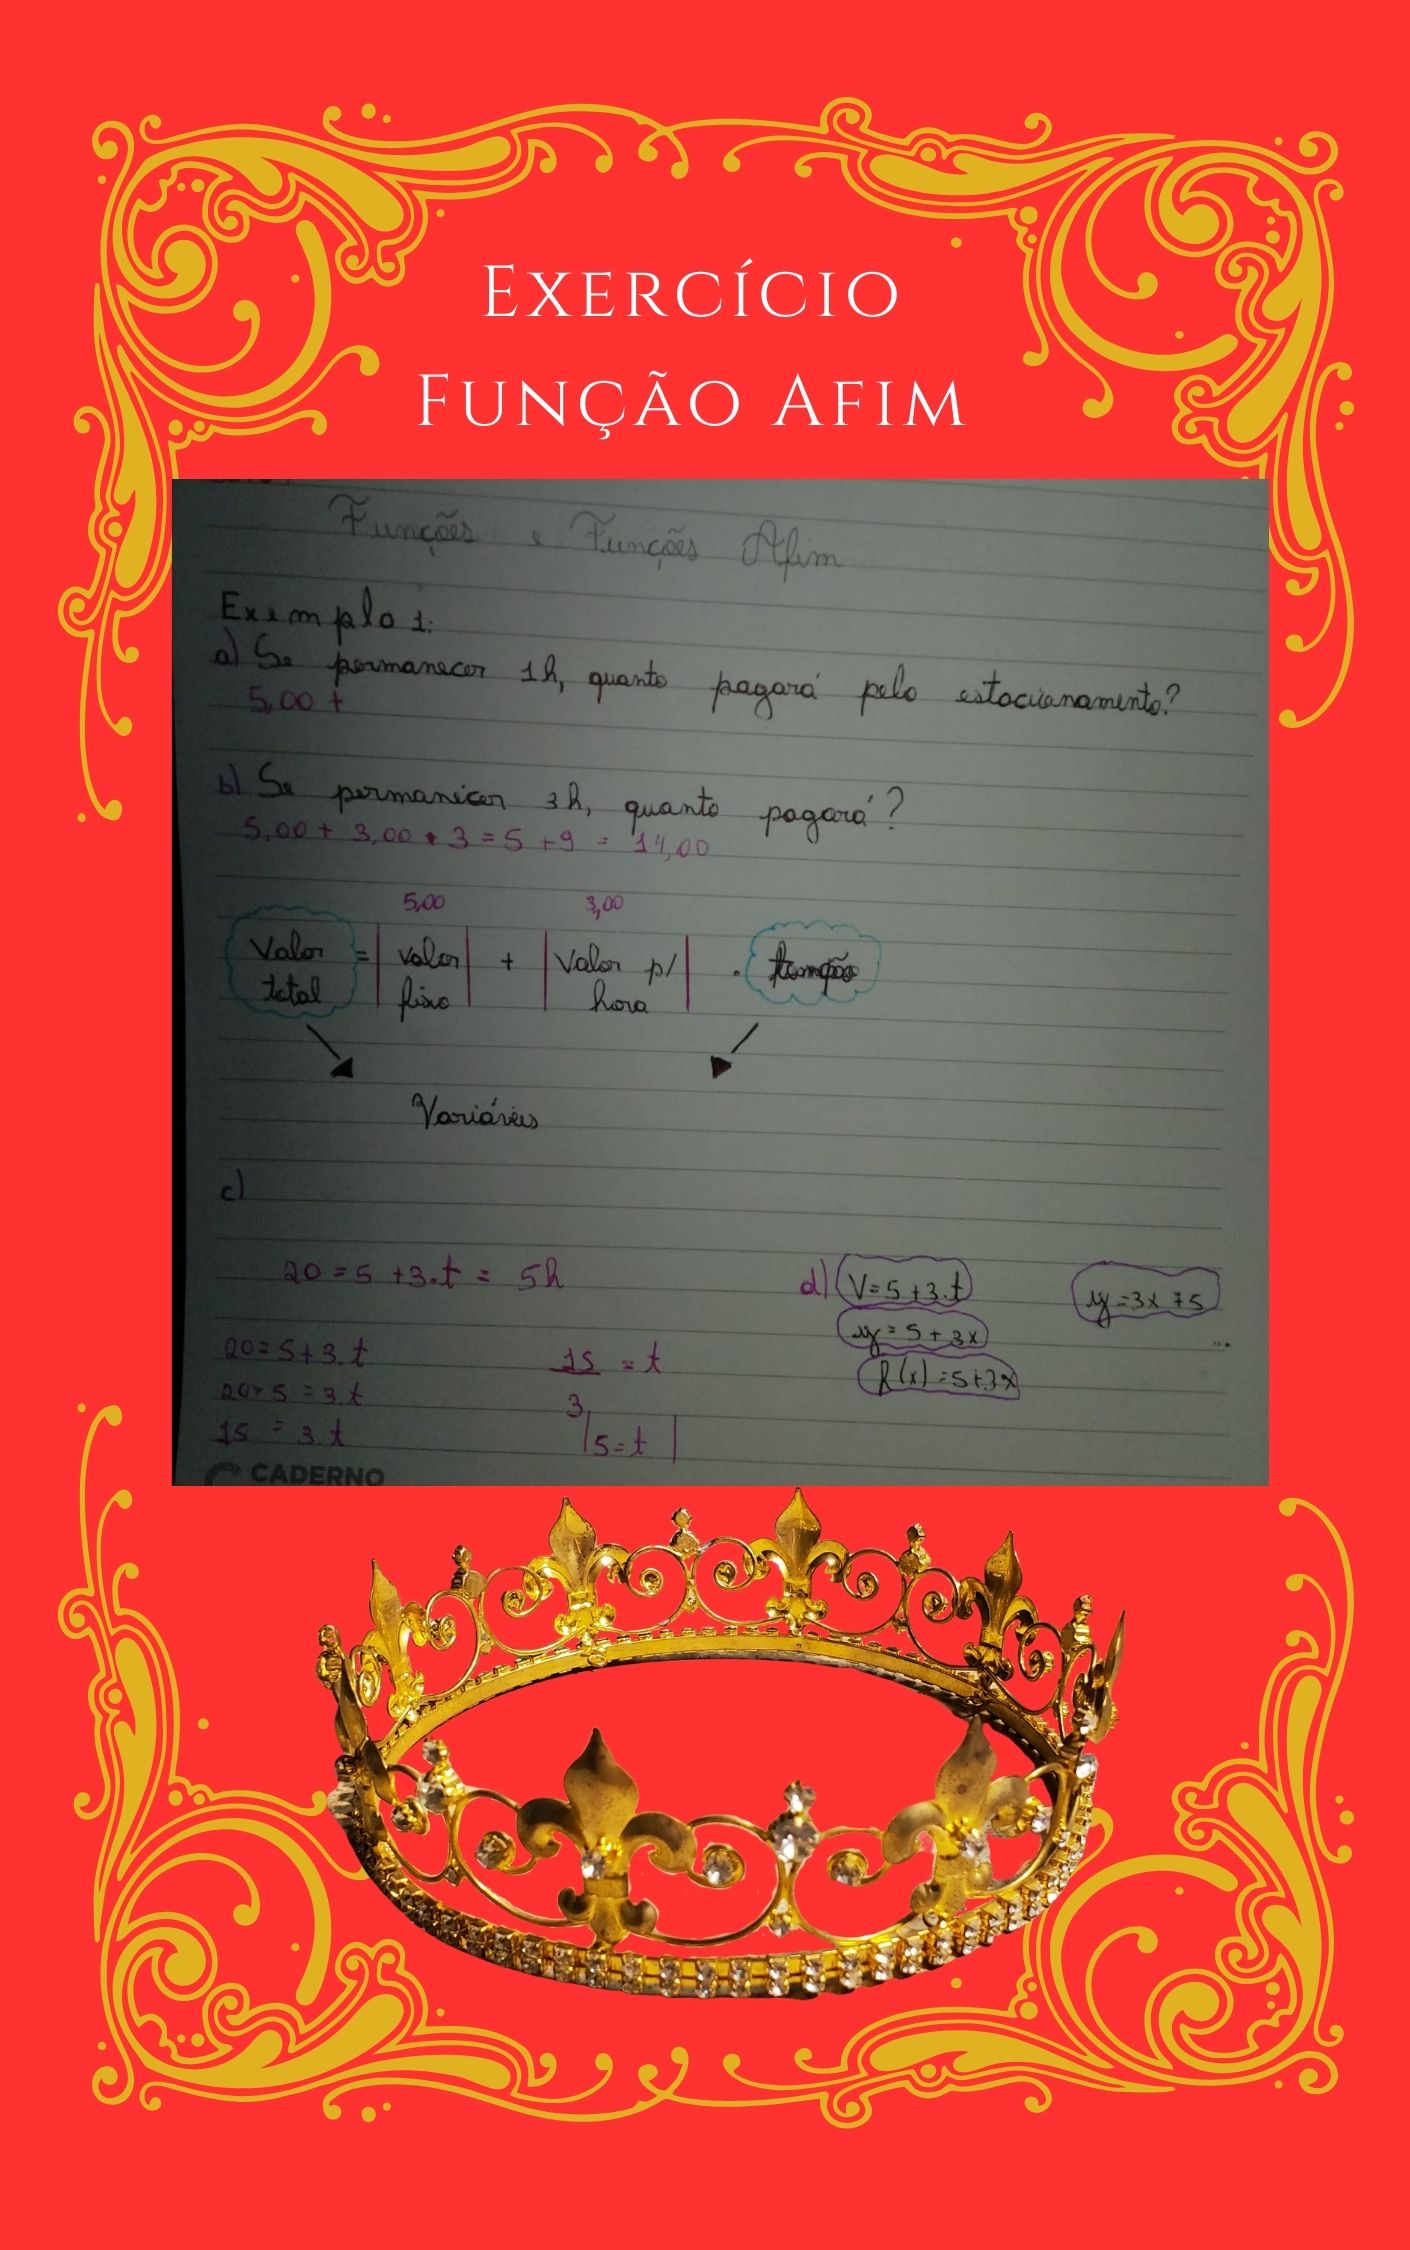 Exercício
Função Afim
Funções e Funções Afim
Exemplo 1:
a) Se permanecer 1h, quanto pagará pelo estacionamento?
5,00 +
b) Se permanecer 3h, quanto pagará?
5,00 + 3,00 • 3 = 5 + 9 = 14,00
5,00 3,00
Valor total = | valor fixo | + | Valor p/ hora | .
Variáveis
c)
20 = 5 + 3.t = 5h
d) V = 5 + 3.t
y = 3x + 5
y = 5 + 3x
20 = 5 + 3.t
15 = t
3
R(x) = 5 + 3x
= 3.t
15 = 3.t
5 = t
CADERNO